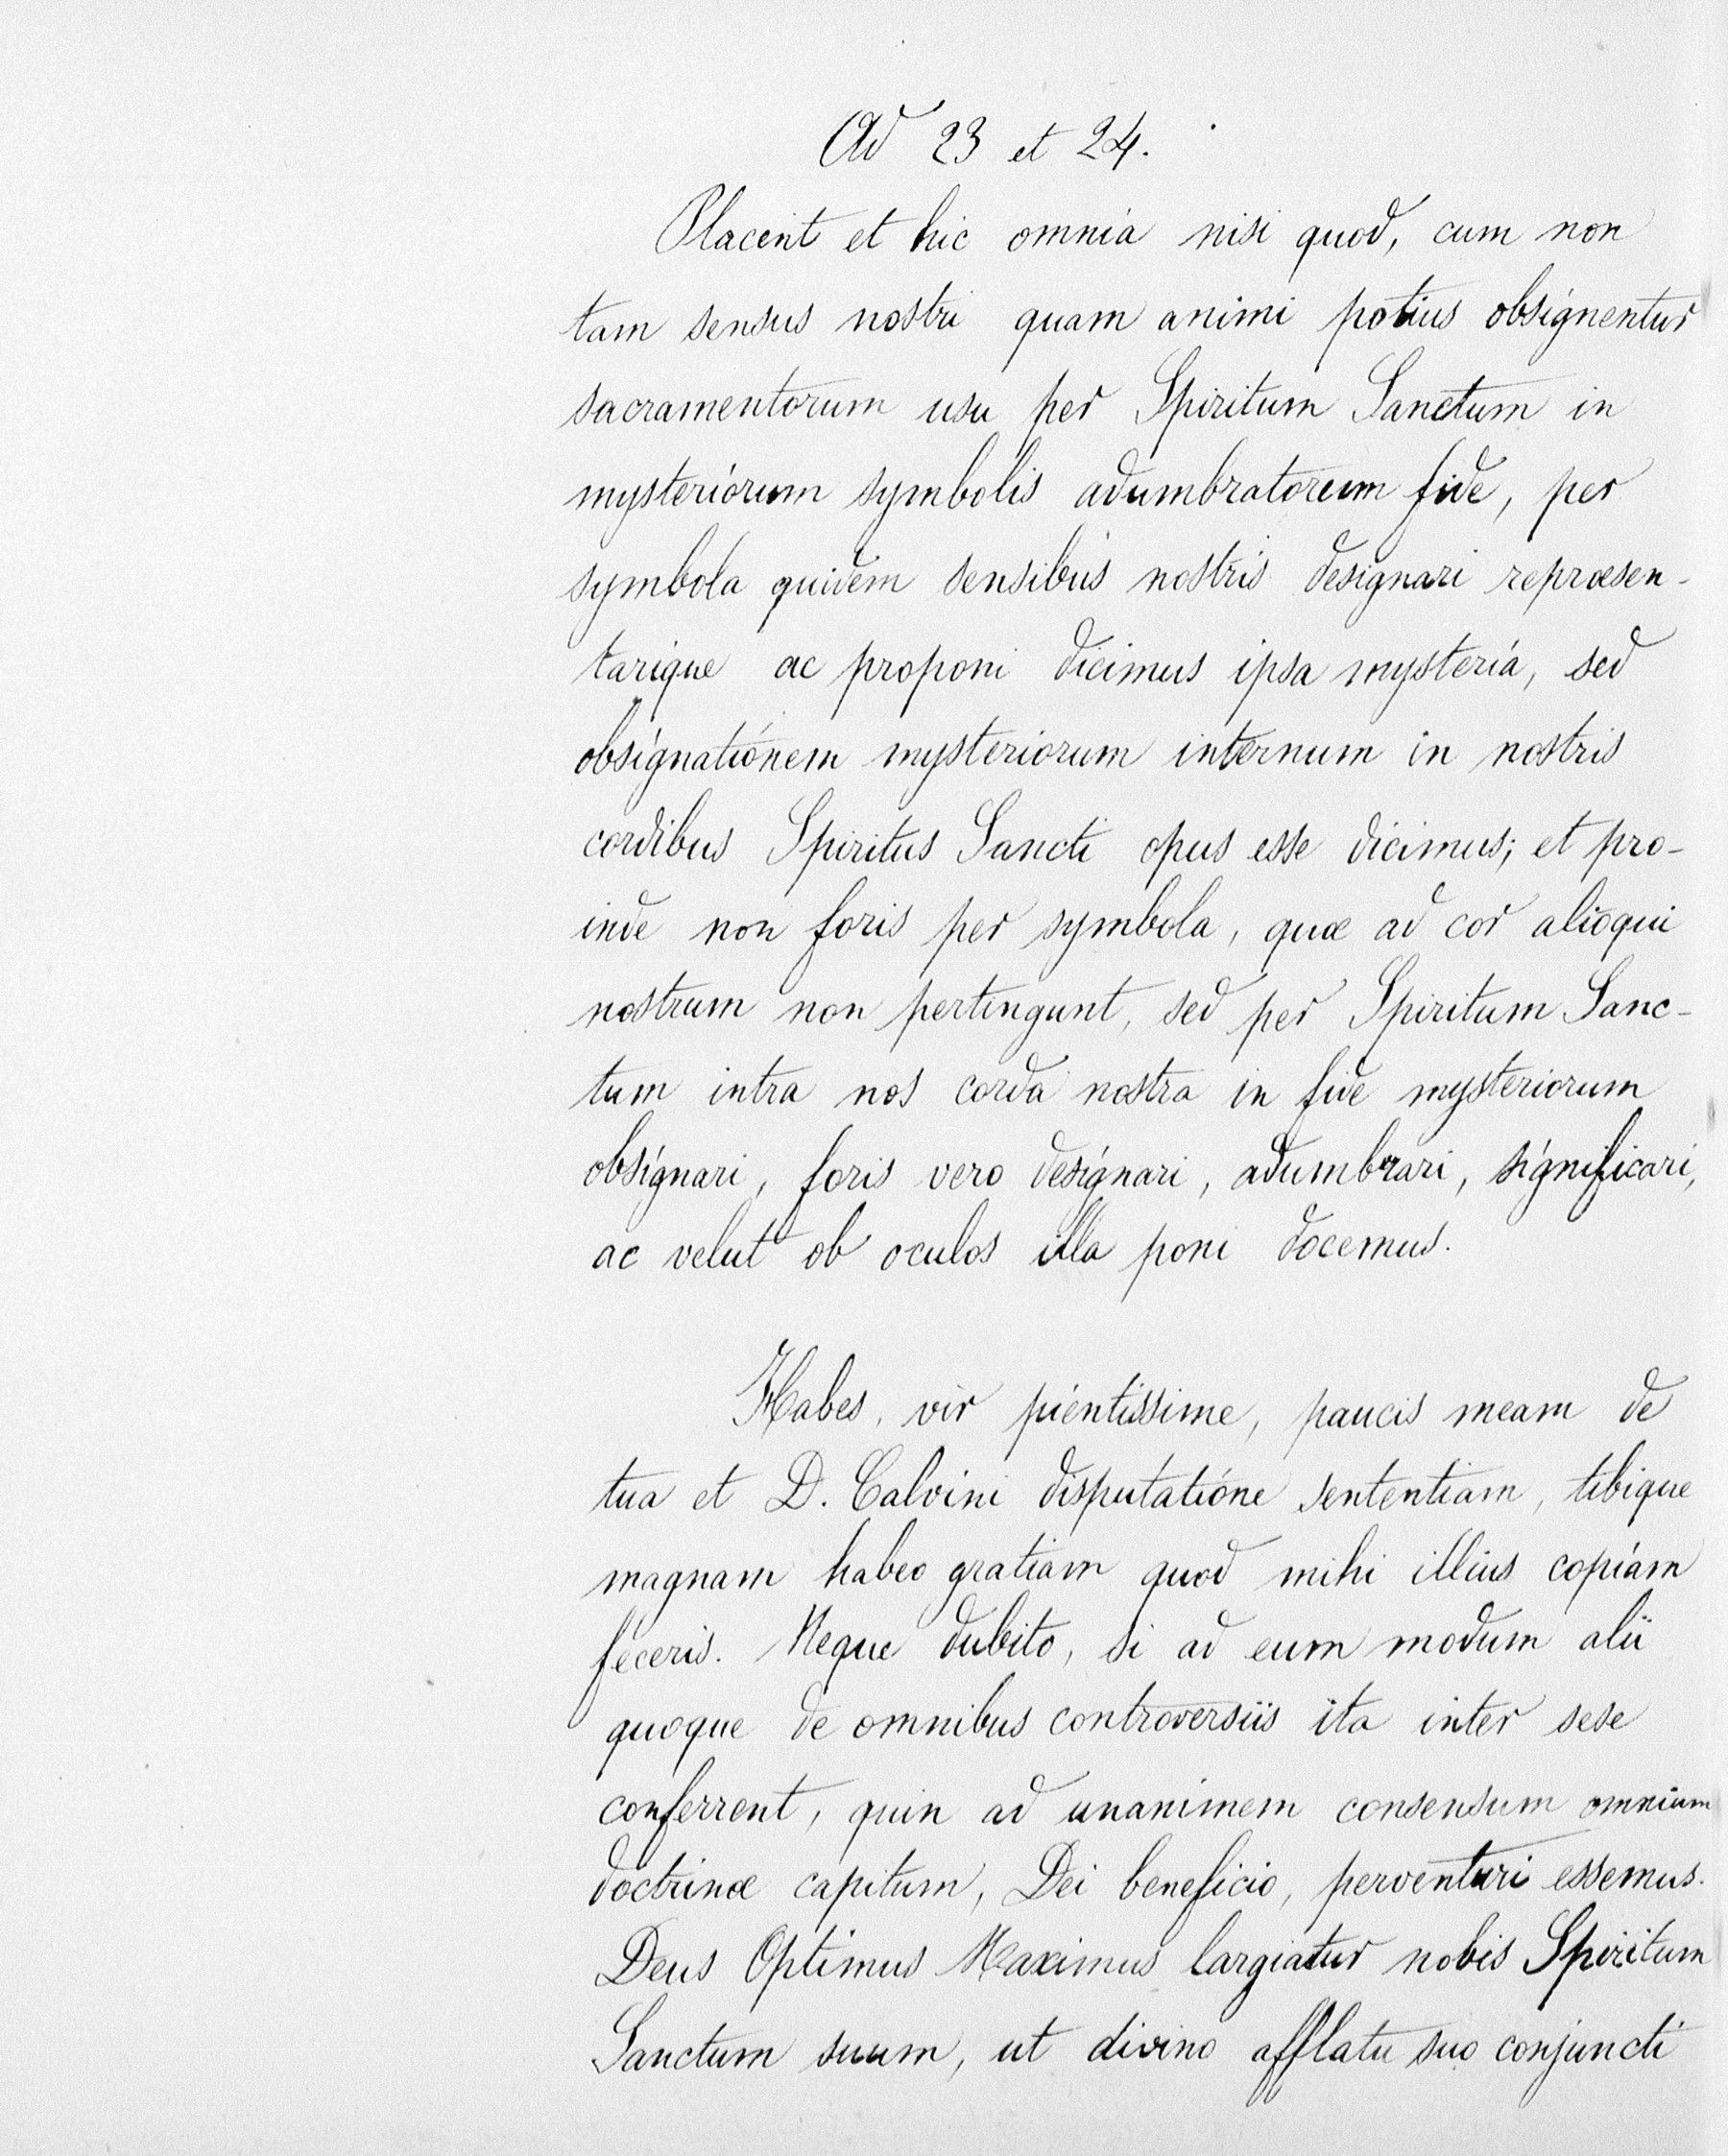 Ad 23 et 24.
Placent et hic omnia nisi quod, cum non
tam sensus nostri quam animi potius obsignentur
sacramentorum usu per Spiritum Sanctum in
mysteriorum symbolis adumbratorum fide, per
symbola quidem sensibus nostris designari repræsen-
tarique ac proponi dicimus ipsa mysteria, sed
obsignationem mysteriorum internum in nostris
cordibus Spiritus Sancti opus esse dicimus; et pro-
inde non foris per symbola, quæ ad cor alioqui
nostrum non pertingunt, sed per Spiritum Sanc-
tum intra nos corda nostra in fide mysteriorum
obsignari, foris vero designari, adumbrari, significari,
ac velut ob oculos illa poni docemus.
Habes, vir pientissime, paucis meam de
tua et D. Calvini disputatione sententiam, tibique
magnam habeo gratiam quod mihi illius copiam
feceris. Neque dubito, si ad eum modum alii
quoque de omnibus controversiis ita inter sese
conferrent, quin ad unanimem consensum omnium
doctrinæ capitum, Dei beneficio, perventuri essemus.
Deus Optimus Maximus largiatur nobis Spiritum
Sanctum suum, ut divino afflatu suo conjuncti